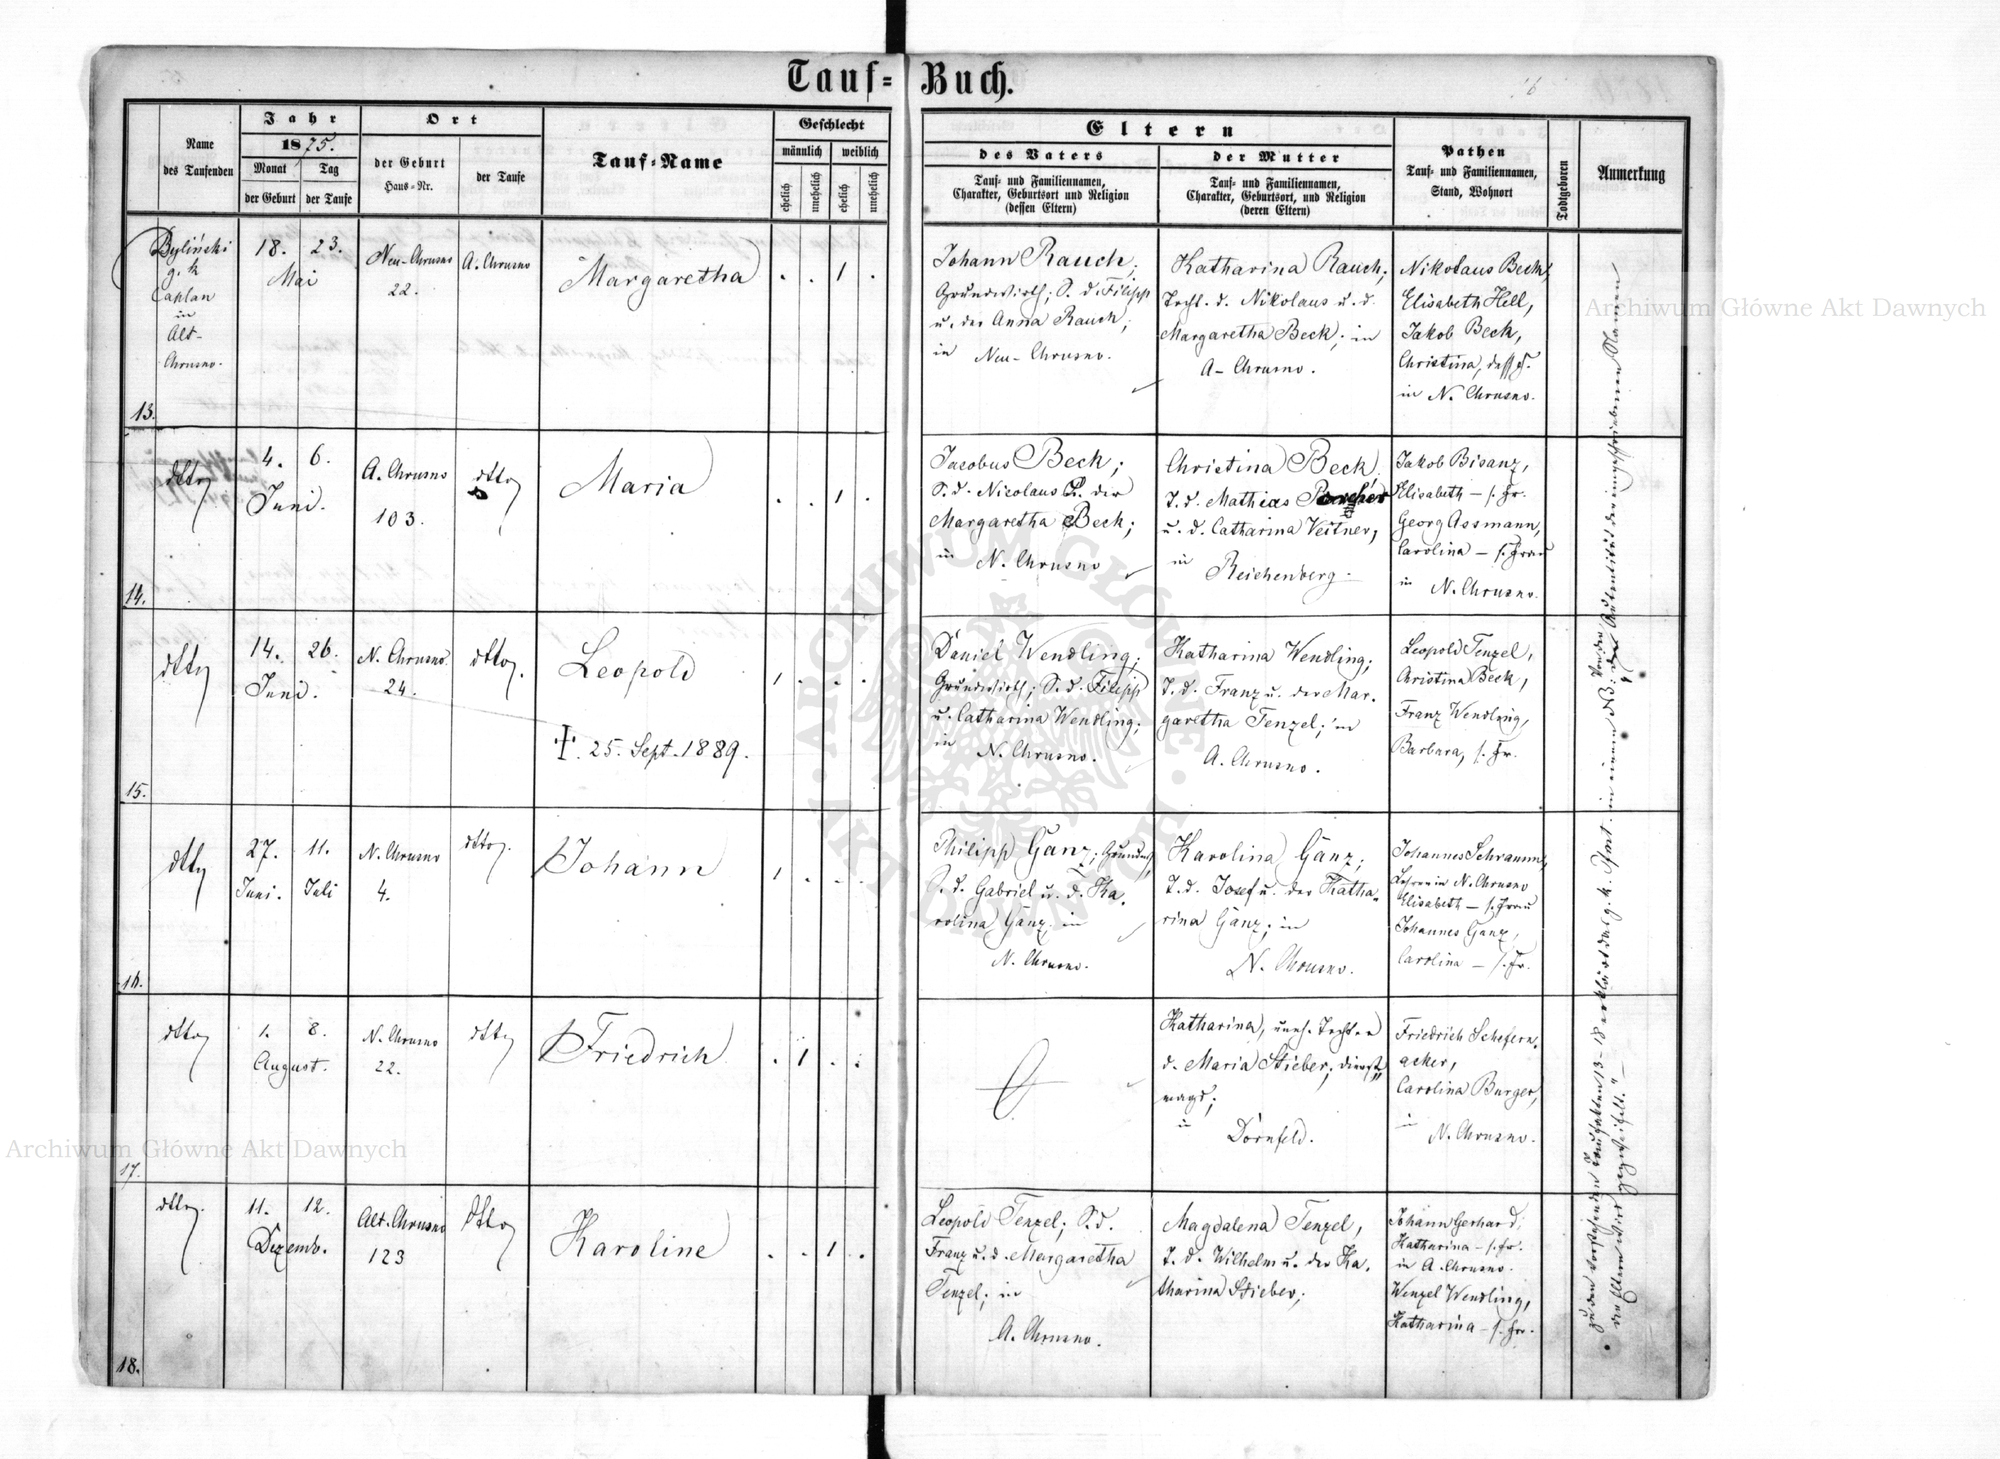 Tauf-Buch.
Name
des Taufenden
Jahr
1875.
Monat
der Geburt
Tag
der Taufe
Ort
der Geburt
Haus-Nr.
der Taufe
Tauf-Name
Geschlecht
männlich
weiblich
ehelich
unehelich
ehelich
unehelich
Eltern
des Vaters
Tauf- und Familiennamen,
Charakter, Geburtsort und Religion
(dessen Eltern)
der Mutter
Tauf- und Familiennamen,
Charakter, Geburtsort, und Religion
(deren Eltern)
Pathen
Tauf- und Familiennamen,
Stand, Wohnort
Todtgeboren
Anmerkung
13.
Byliński
g. k.
Caplan
in
Alt-
Chrusno.
18. 23.
Mai
Neu-Chrusno
22.
A. Chrusno
Margaretha
. . 1 .
Johann Rauch,
Grundwirth; S. d. Filipp
u. der Anna Rauch;
in Neu-Chrusno.
Katharina Rauch;
Tocht. d. Nikolaus u. d.
Margaretha Beck; in
A-Chrusno.
Nikolaus Beck,
Elisabeth Hell,
Jakob Beck,
Christina,
in N. Chrusno.
14.
dtto
4. 6.
Juni.
A. Chrusno
103.
dtto
Maria
. . 1 .
Jacobus Beck;
S. d. Nicolaus u. der
Margaretha Beck;
in N. Chrusno
Christina Beck
T. d. Mathias
u. d. Catharina Veitner,
in
Reichenberg.
Jakob Bisanz,
Elisabeth – s. Fr.
Georg Assmann,
Carolina – s. Frau
in N. Chrusno.
15.
dtto
14. 26.
Juni.
N. Chrusno.
24.
dtto.
Leopold
†. 25. Sept. 1889.
1 . . .
Daniel Wendling;
Grundwirth; S. d. Filipp
u. Catharina Wendling;
in N. Chrusno.
Katharina Wendling;
T. d. Franz u. der Mar-
garetha Tenzel; in
A. Chrusno.
Leopold Tenzel,
Christina Beck,
Franz Wendling,
Barbara, s. Fr.
16.
dtto
27. 11.
Juni. Juli
N. Chrusno
4.
dtto.
Johann
1 . . .
Philipp Ganz;
S. d. Gabriel u. d. Ka-
rolina Ganz in
N. Chrusno.
Karolina Ganz;
T. d. Josef u. der Katha-
rina Ganz; in
N. Chrusno.
Johannes Schramm,
Lehrer in N. Chrusno
Elisabeth – s. Frau
Johannes Ganz,
Carolina – s. Fr.
17.
dtto
1. 8.
August.
N. Chrusno
22.
dtto
Friedrich
. 1 . .
Katharina, uneh. Tochter
d. Maria Stieber; Dienst-
magd;
in Dornfeld.
Friedrich Schefern-
acker,
Carolina Burger,
in N. Chrusno.
18.
dtto.
11. 12.
Dezemb.
Alt-Chrusno
123
dtto
Karoline
. . 1 .
Leopold Tenzel; S. d.
Franz u. d. Margaretha
Tenzel; in
A. Chrusno.
Magdalena Tenzel,
T. d. Wilhelm u. der Ka-
tharina Stieber;
Johann Gerhard;
Katharina – s. Fr.
in A. Chrusno.
Wenzel Wendling,
Katharina – s. Fr.
Archiwum Główne Akt Dawnych
Archiwum Główne Akt Dawnych
ARCHIWUM GŁÓWNE AKT DAWNYCH